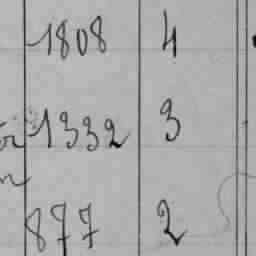 1808 4
1332 3
877 2